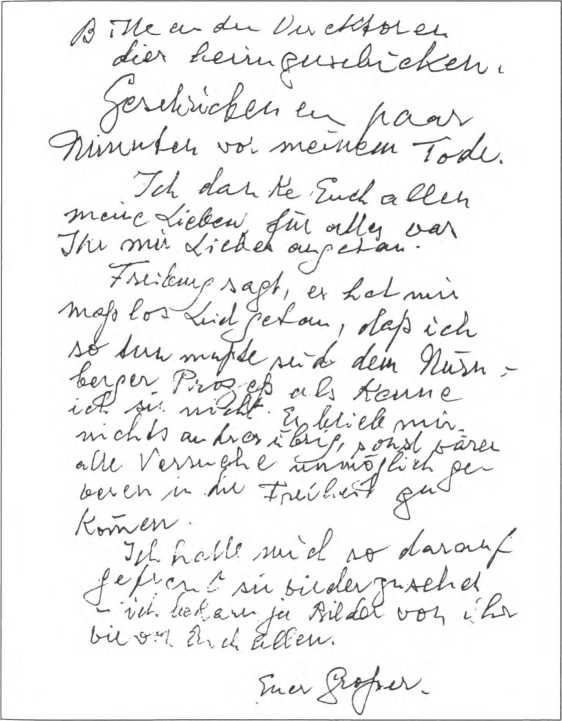 Bitte an die Direktoren
dies heimzuschicken.
Geschrieben ein paar
Minuten vor meinem Tode.
Ich danke Euch allen
meine Lieben, für alles was
Ihr mir Liebes angetan.
Freiburg sagt, es hat mir
maßlos Leid getan, daß ich
so tun mußte seit dem Nürn-
berger Prozeß als kenne
ich sie nicht. Es blieb mir
nichts andres übrig, sonst wären
alle Versuche unmöglich ge
wesen in die Freiheit zu
kom̄en.
Ich hatte mich so darauf
gefreut sie wiederzusehen
- ich bekam ja Bilder von ihr
wie von Euch allen.
Euer Großer.